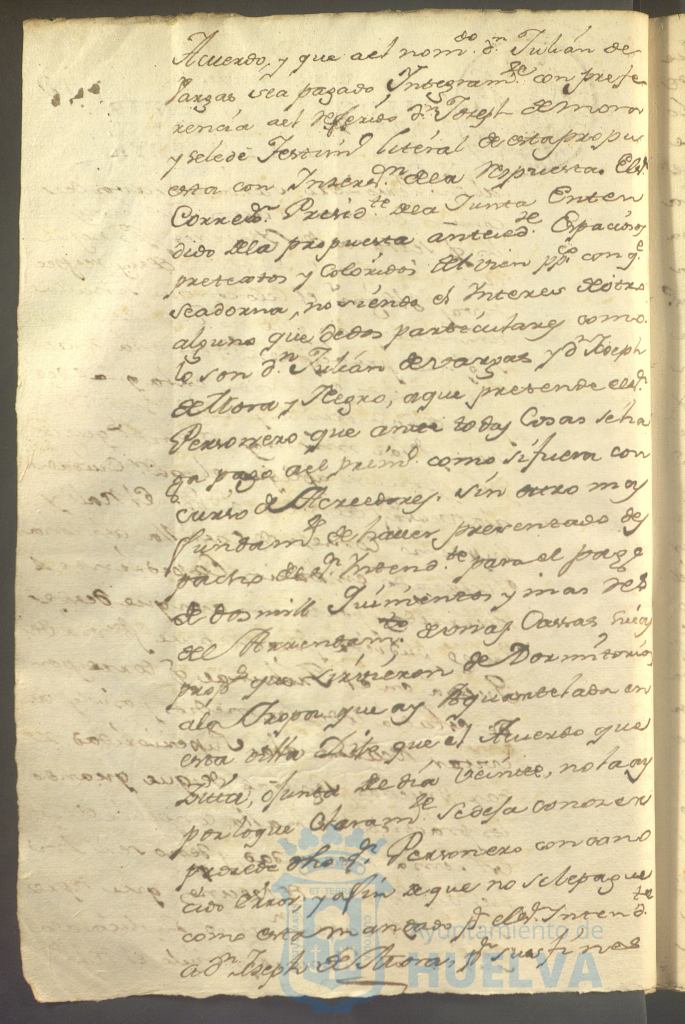 Acuerdo, y que ael nom.do d.n Julián de
Vargas sea pagado Yntegram.te con prefe
rencia ael referido d.n Joseph de mora
y selede Testim.o literál de esta propu
esta con Inserz.n dela respuesta. El S.r
Correg.r Presid.te dela Junta Enten
dido dela propuesta anteced.te Espacios y
pretextos y Coloridos del vien pp.co con q.e
seadorna, no siendo el Interes de otro
alguno que de dos particulares como
lo son d.n Julián de vargas y d.n Joseph
de Mora y Negro, a que pretende el S.r
Personero que antes todas Cosas se ha
ga pago ael prim.o como si fuera con
curso de Acreedores, sin otro mas
fundam.to de haver presentado des
pacho del S.r Intend.te para el pago
de dos mill Quinientos y mas r.s
del Arrendam.to de unas Cassas suias
prop.s que sirvieron de Dormitorios
ala Tropa que ay Aquartelada en
esta villa Dize que el Acuerdo que
Zitta, ó Junta de día veinte, no la ay
por loque Claram.te sedexa conozer
prozede dho S.r Personero con cono
cido error, y a fin de que no se le pague
como esta mandado p.r el S.r Intend.te
a d.n Joseph de Mora, p.r sus fines
Ayuntamiento de
HUELVA